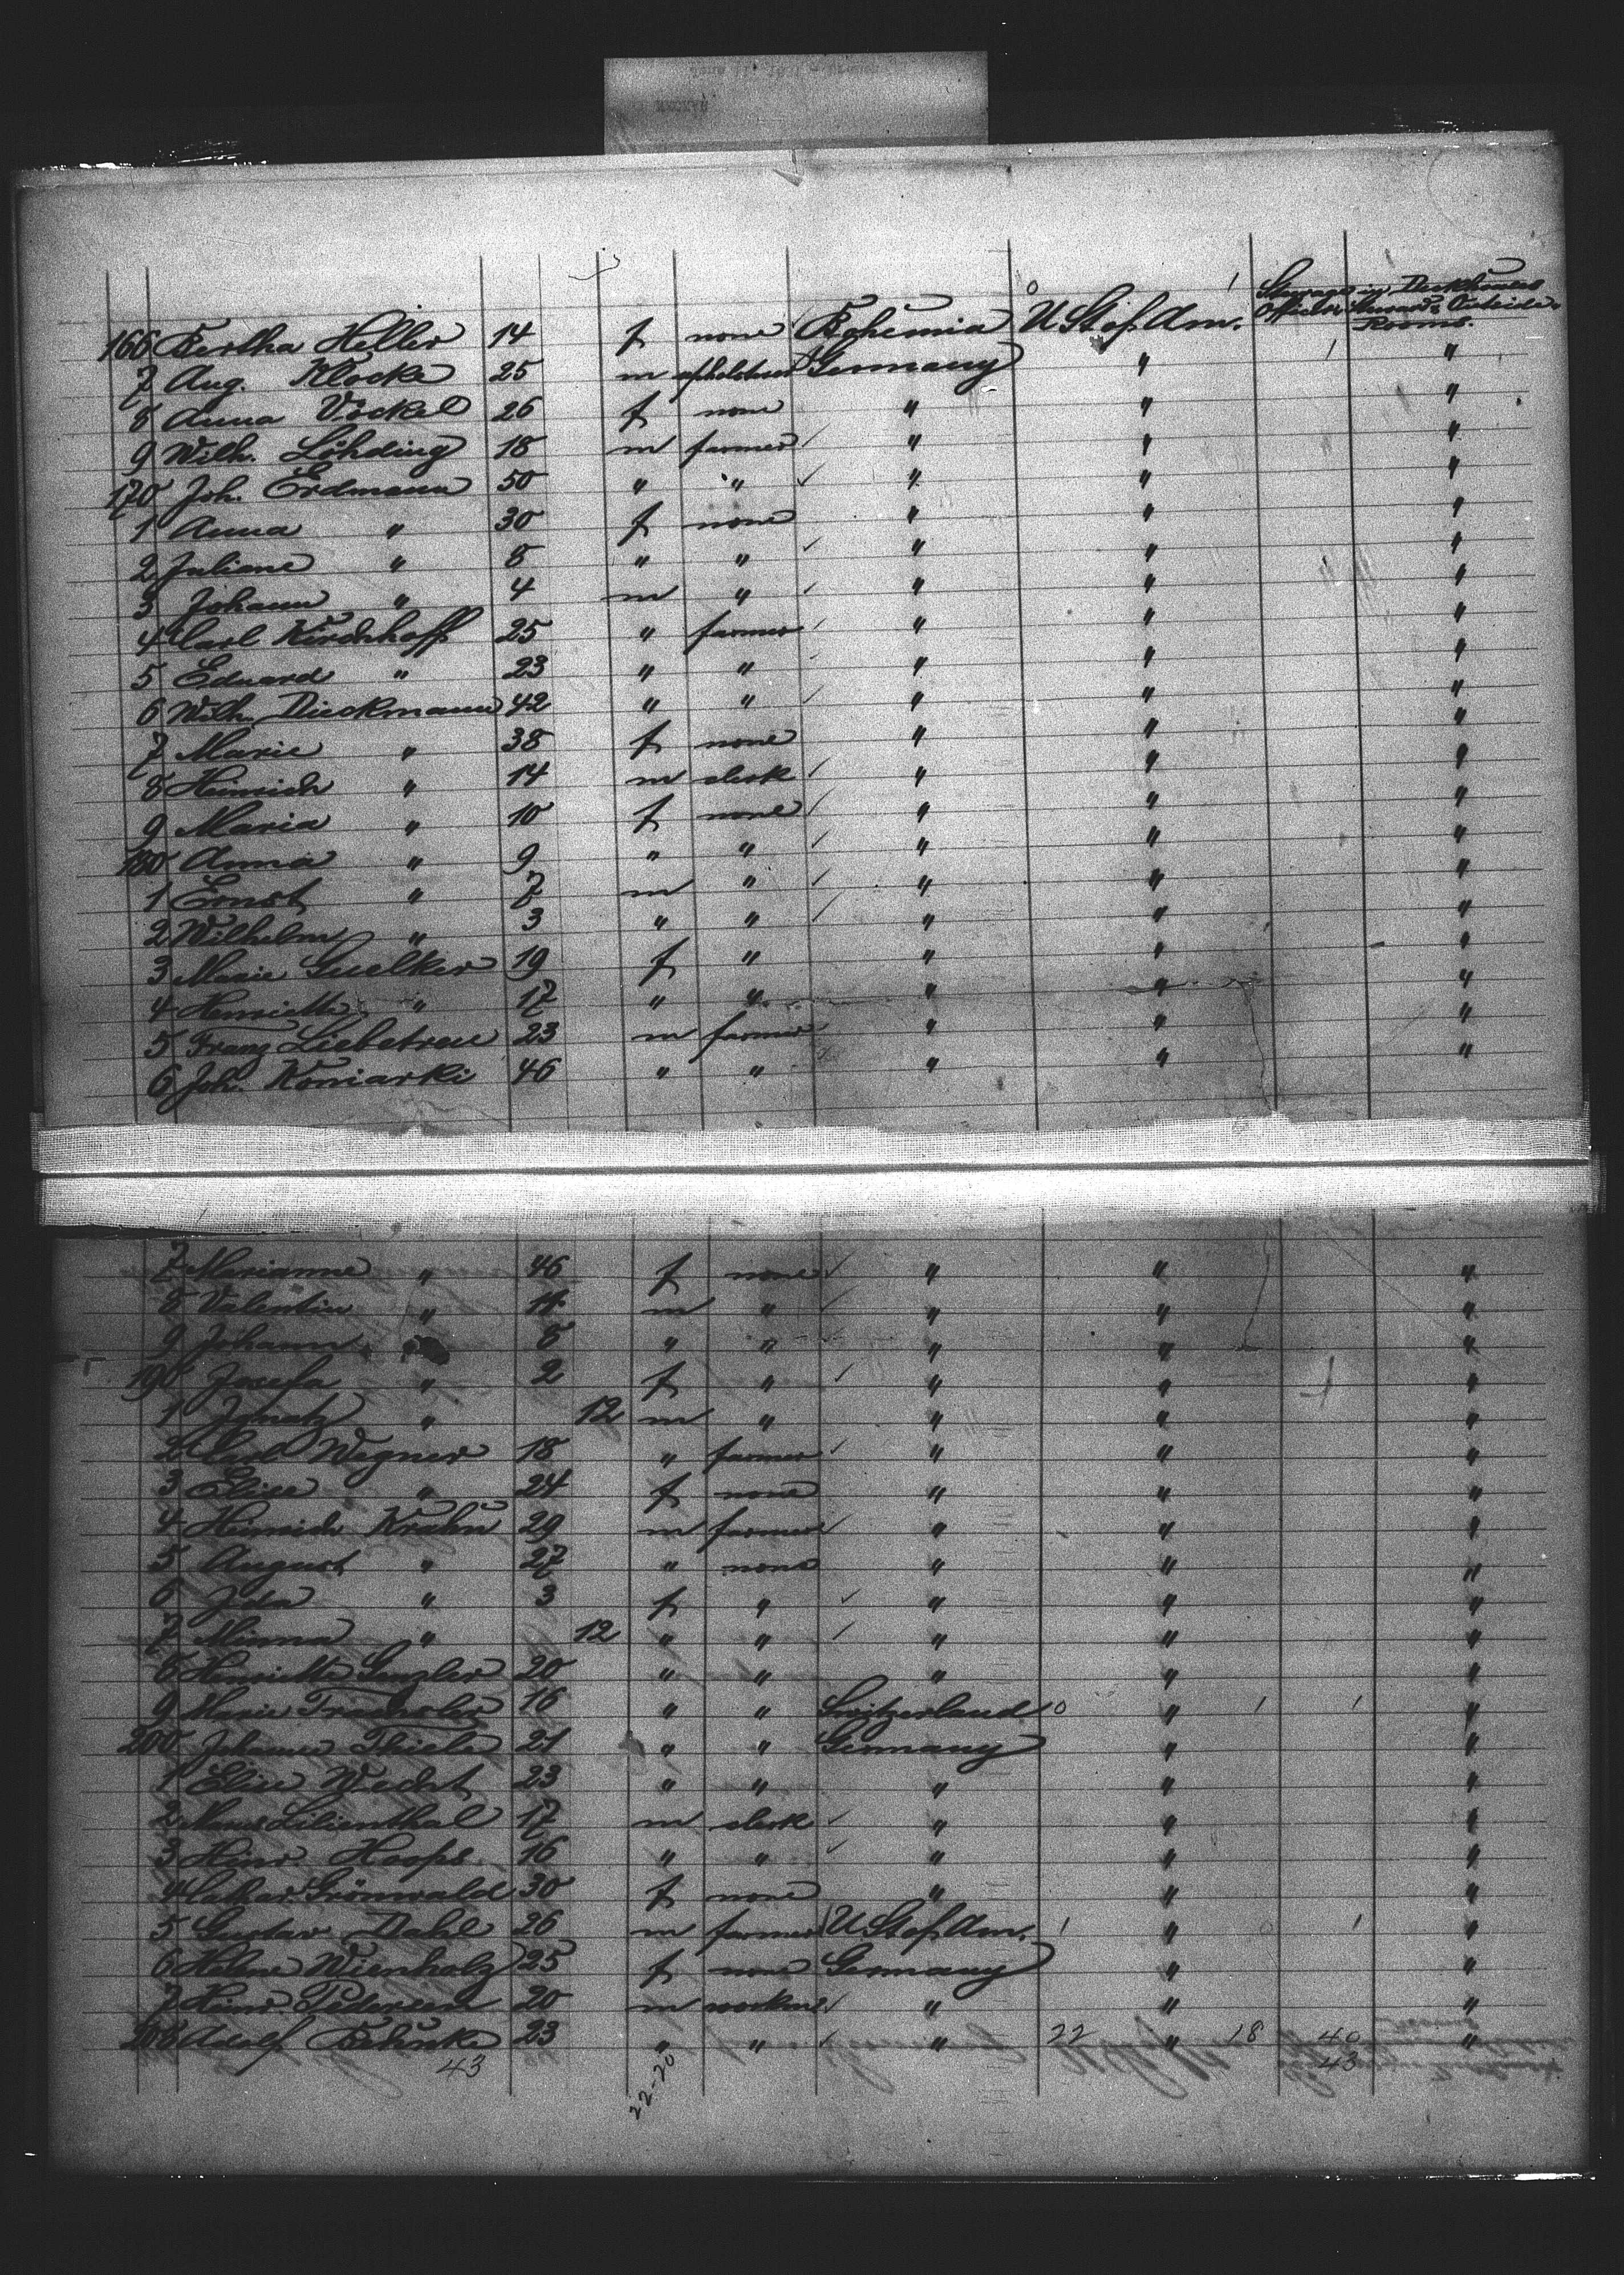 Steerage in Deckhouses
Rooms.
166 Bertha Heller 14 f none Bohemia 0 U St of Am. 1
7 Aug. Klocke 25 m upholsterer Germany " 1 "
8 Anna Vockel 26 f none " " "
9 Wilh. Löhding 18 m farmer " " "
170 Joh. Erdmann 50 " " " " "
1 Anna " 30 f none " " "
2 Juliane " 8 " " " " "
3 Johann " 4 m " " " "
4 Carl Kirchhoff 25 " farmer " " "
5 Eduard " 23 " " " " "
6 Wilh. Dieckmann 42 " " " " "
7 Marie " 38 f none " " "
8 Heinrich " 14 m clerk " " "
9 Maria " 10 f none " " "
180 Anna " 9 " " " " "
1 Ernst " 7 m " " " "
2 Wilhelm " 3 " " " " "
3 Marie Guelker 19 f " " " "
4 Henriette " 17 " " " " "
5 Franz Liebetreu 23 m farmer " " "
6 Joh. Koniarki 46 " " " " "
7 Marianne " 46 f none " " "
8 Valentin " 11 m " " " "
9 Johann " 8 " " " " "
190 Josefa " 2 f " " " "
1 Ignatz " 12 m " " " "
2 Carl Wegner 18 " farmer " " "
3 Elise " 24 f none " " "
4 Heinrich Krahn 29 m farmer " " "
5 August " 27 " none " " "
6 Ida " 3 f " " " "
7 Minna " 12 " " " " "
8 Henriette 20 " " " " "
9 Marie 16 " " Switzerland 0 " 1 1 "
200 Johanne Thiele 21 " " Germany " "
1 Elise Wecht 23 " " " " "
2 Lilienthal 17 m clerk " " "
3 Hinr. Hoops 16 " " " " "
4 Cathar. Grönwald 30 f none " " "
5 Gustav Dahl 26 m farmer U St of Am. 1 " 0 1 "
6 Helene Wienholz 25 f none Germany " "
7 Heinr. Pedersen 20 m workm. " " "
208 Adolf Behnke 23 " " " 22 " 18 40 "
43 22-20 43